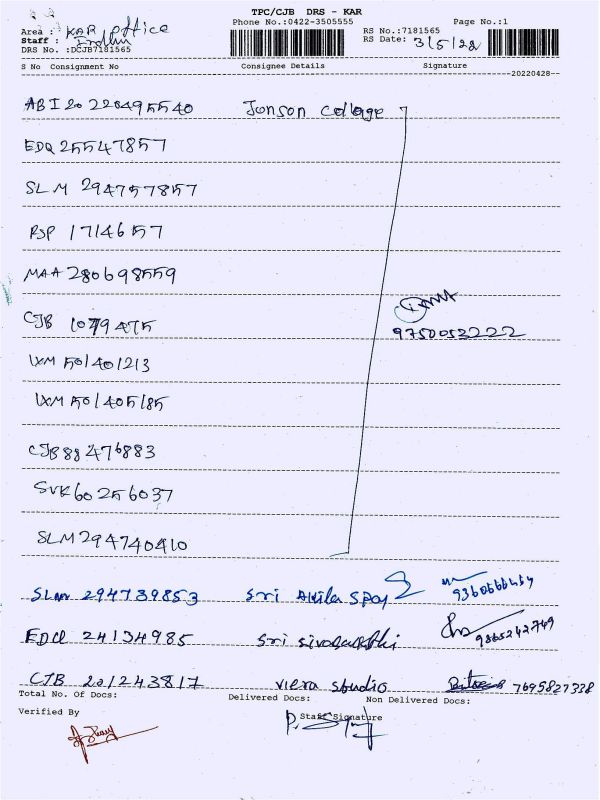 TPC/CJB DRS - KAR
Phone No.:0422-3505555
Page No.:1
Area : KAR office
RS No.:7181565
Staff :
RS Date: 3/5/22
DRS No. :DCJB7181565
S No Consignment No Consignee Details Signature
--20220428--
ABI20220495540 Jonson College
EDQ 25547857
SLM 294757857
PJP 1714657
MAA 280698559
CJB 1079475
9750053222
IXM 501401213
IXM 501405185
CJB88476883
SVK60256037
SLM294740410
SLM 294739853 Sri Akila Spoy
EDQ 24134985 Sri 9865242749
CJB 201243817 viera studio 7695827338
Total No. Of Docs: Delivered Docs: Non Delivered Docs:
Verified By Staff Signature